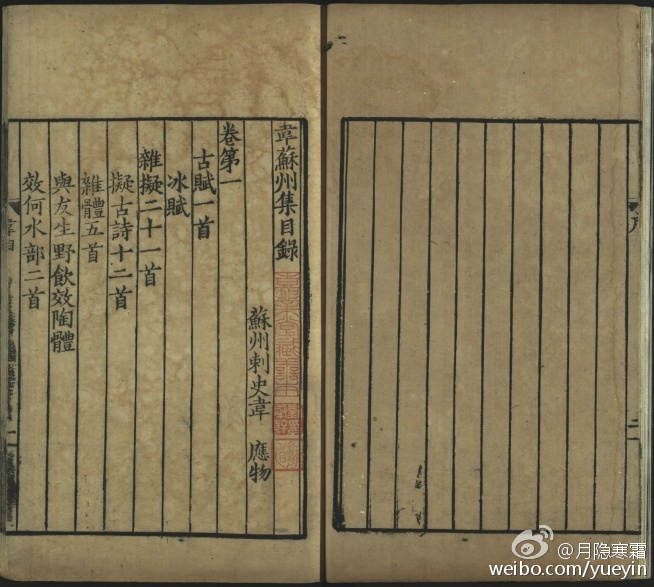 韋蘇州集目錄
蘇州刺史韋 應物
卷第一
古賦一首
冰賦
雜擬二十一首
擬古詩十二首
雜體五首
與友生野飲效陶體
效何水部二首
@月隐寒霜
weibo.com/yueyin